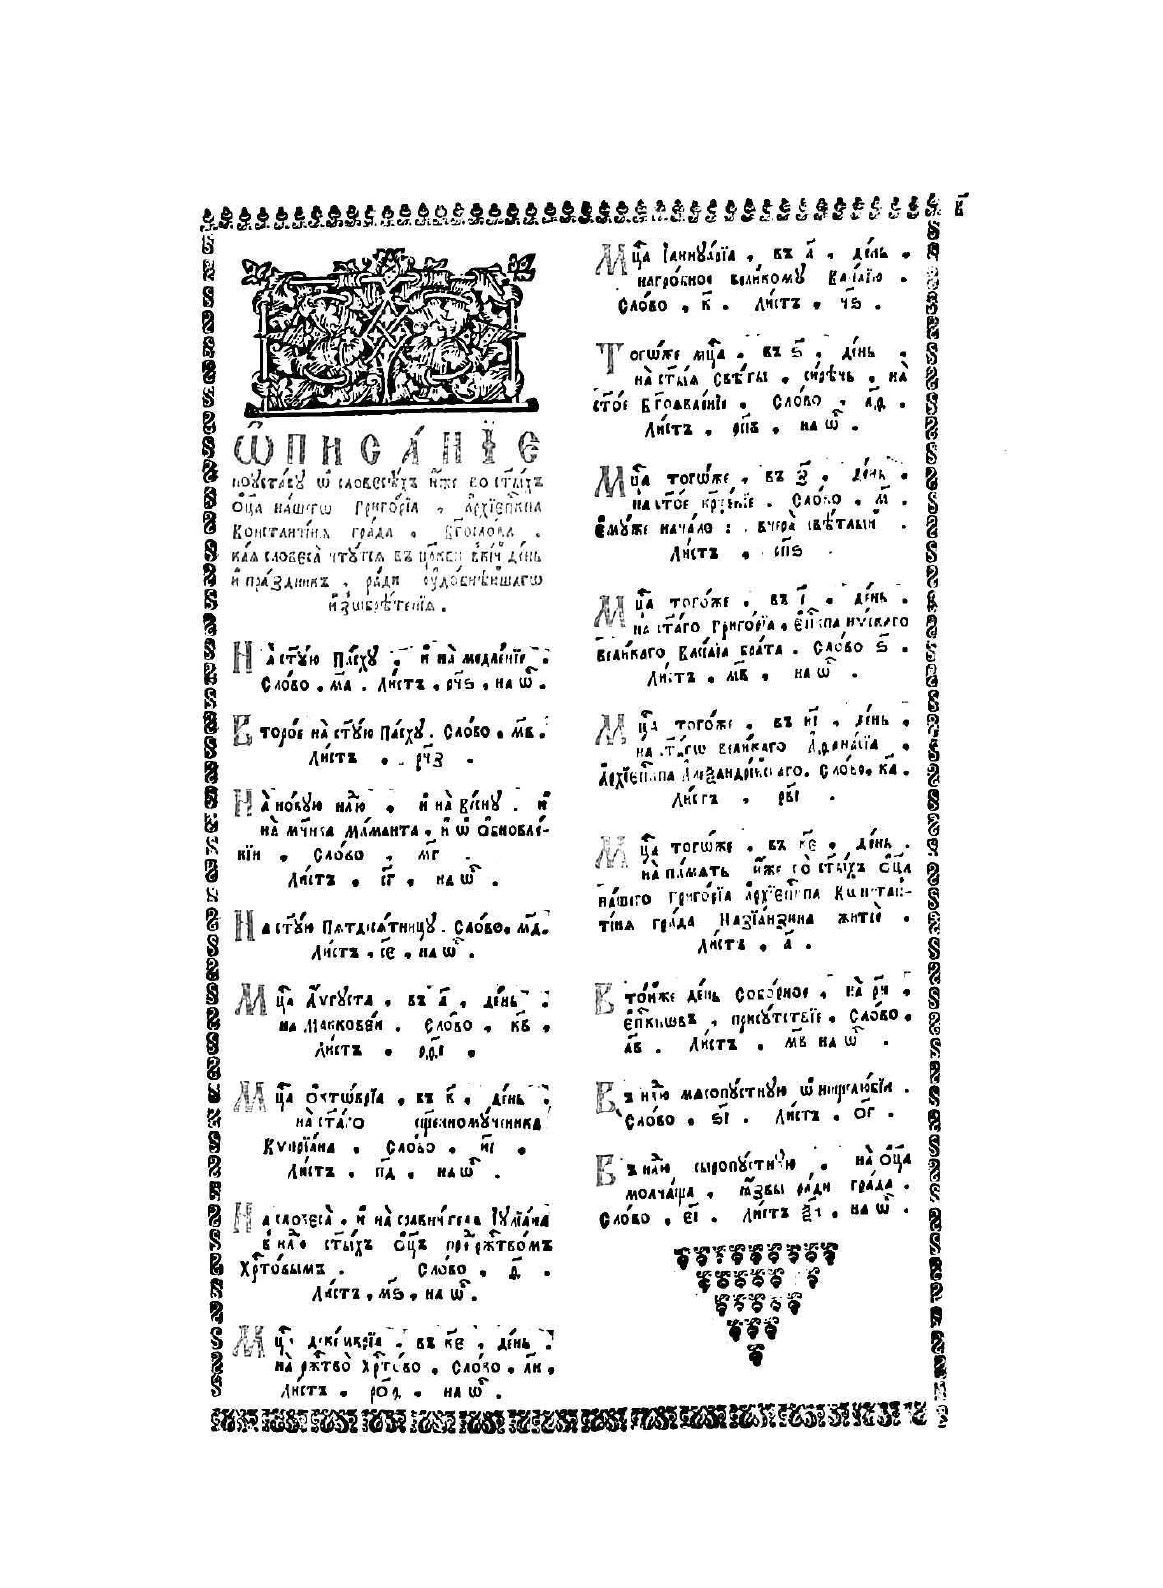 в҃
Ѡ҆ПИСА́НЇЕ
поуста́ву ѡ҆ словесѣ́хъ и҆́же во ст҃ы́хъ
ѻ҆ц҃а на́шегѡ григо́рїа , а҆рхїеп҃кпа
константі́нѧ гра́да , бг҃осло́ва .
ка́ѧ словеса̀ чту́тсѧ въ цр҃кви в кі́й де́нь
и҆ пра́здникъ , ра́ди оу҆добнѣ́йшагѡ
и҆з̾ѡбрѣ́тенїѧ .
На̀ ст҃у́ю па́сху . и҆ на̀ медле́нїе .
Сло́во . м҃а . ли́стъ . рч҃ѕ , на ѡб .
Второ́е на̀ ст҃у́ю па́сху . сло́во . м҃в .
ли́стъ . рч҃з .
На̀ но́вую нлю , и҆ на̀ весну̀ . и҆
на̀ мч҃нка мама́нта , и҆ ѡ҆ ѻ҆бновле́-
нїи . сло́во . м҃г .
ли́стъ . с҃г , на ѡб .
На ст҃у́ю пѧтдесѧ́тницу . сло́во . м҃д .
ли́стъ . с҃е , на ѡб .
Мц҃а а҆́ѵгуста , въ а҃ , де́нь .
на маккове́и . сло́во . к҃в .
ли́стъ .
Мц҃а ѻ҆ктѡ́врїа , въ в҃ , де́нь .
на̀ ст҃а́го сщ҃енномⷹченика
кѵпрїа́на . сло́во . и҃і .
ли́стъ . п҃д , на ѡб .
На словеса̀ , и҆ на̀ сравни́телѧ і҆ꙋлїа́на
в нлю ст҃ы́хъ ѻ҆ц҃ъ пре́ рж҃тво́мъ
хр҃то́вымъ . сло́во . д҃ .
ли́стъ , м҃ѕ , на ѡб .
Мц҃а деке́мврїа , въ к҃е , де́нь .
на̀ рж҃тво̀ хр҃то́во . сло́во . л҃и .
ли́стъ . на ѡб .
Мц҃а і҆аннуа́рїа , въ а҃ , де́нь .
нагро́бное вели́кому васі́лїю .
Сло́во , к҃ . ли́стъ . ч҃ѕ .
Тогѡ́же мц҃а , въ ѕ҃ , де́нь .
на̀ ст҃ы́ѧ свѣ́ты . си́рѣчь , на̀
ст҃о́е бг҃оѧвле́нїе . сло́во . л҃ѳ .
ли́стъ . рп҃в . на ѡб .
Мц҃а тогѡ́же , въ з҃ , де́нь .
на̀ ст҃о́е кр҃ще́нїе . сло́во . м҃ .
є҆му́же нача́ло : . вчера̀ свѣ́тлый .
ли́стъ . рп҃ѕ .
Мц҃а того́же , въ і҃ , де́нь .
на̀ ст҃а́го григо́рїа , є҆пⷭ҇па ни́скаго
вели́каго васі́лїа бра́та . сло́во ѕ҃ .
ли́стъ . м҃в , на ѡб .
Мц҃а того́же , въ и҃і , де́нь .
на ст҃а́гѡ вели́каго а҆ѳана́сїа .
а҆рхїеп҃па а҆леѯандрі́йскаго . сло́во . к҃а .
ли́стъ , рв҃і .
Мц҃а тогѡ́же , въ к҃е , де́нь .
на̀ па́мѧть и҆́же во ст҃ы́хъ ѻ҆ц҃а
на́шего григо́рїа а҆рхїеп҃па кѡнстан-
ті́нѧ гра́да назїанзи́на житїѐ .
ли́стъ . а҃ .
В то́йже де́нь собо́рное , на̀ рч҃и .
є҆п҃кпѡвъ , прису́тствїе . сло́во .
л҃в . ли́стъ . м҃в на ѡб .
Въ нлю масопу́стную ѡ҆ нищелю́бїи .
Сло́во . ѕ҃і . ли́стъ . о҃г .
Въ нлю сыропу́стную , на̀ ѻ҆ц҃а
молча́ща , ꙗ҆́звы ра́ди гра́да .
Сло́во . є҃і . ли́стъ ѯ҃и . на ѡб .